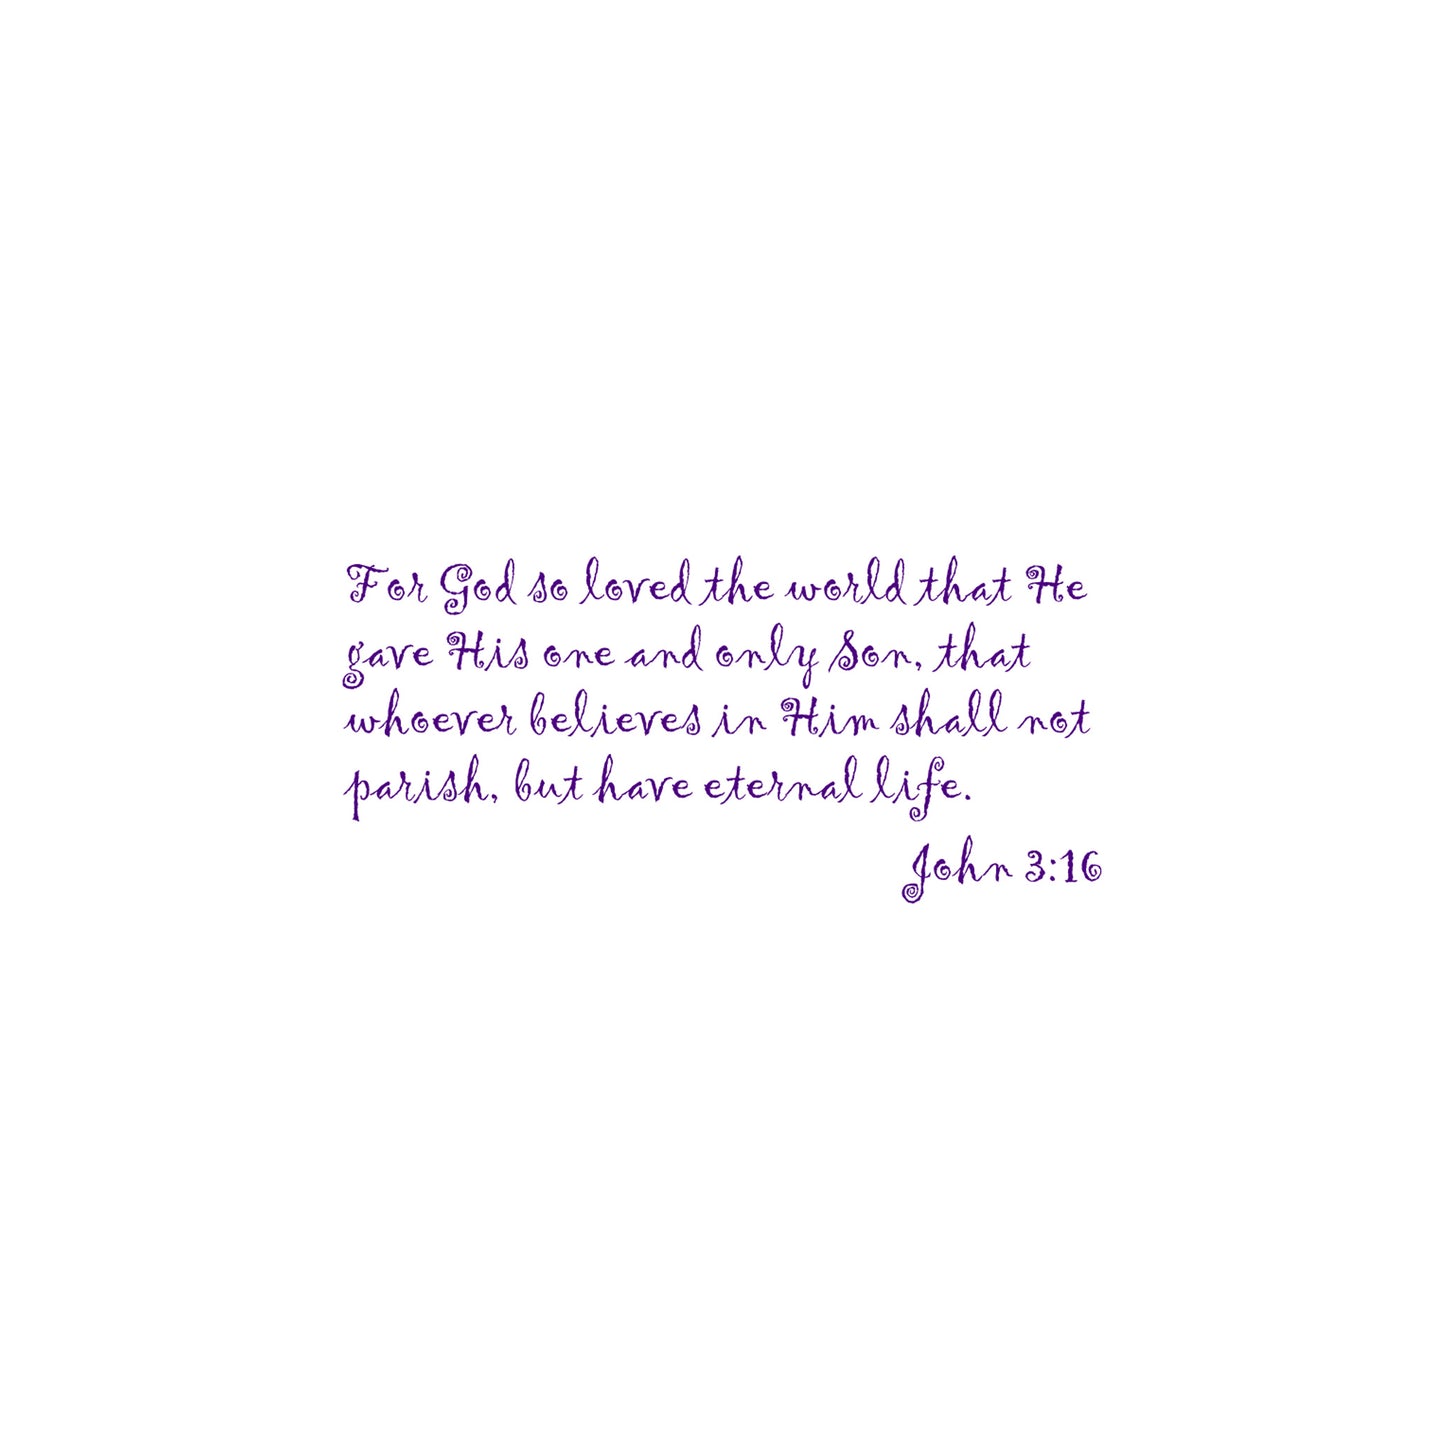 For God so loved the world that He
gave His one and only Son, that
whoever believes in Him shall not
parish, but have eternal life.
John 3:16